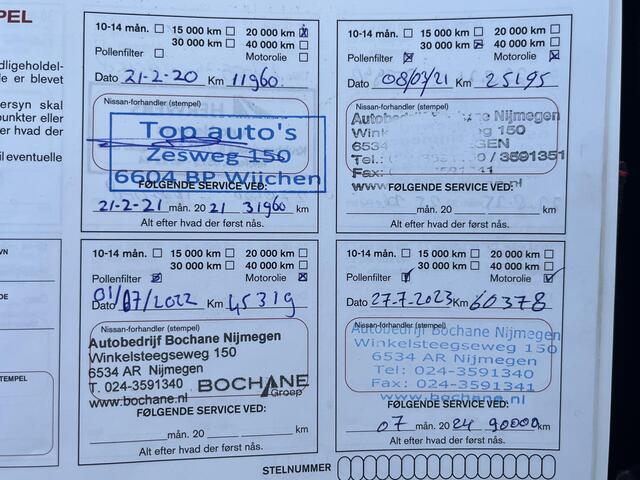 PEL
dligeholdel-
de er blevet
ersyn skal
punkter eller
er hvad der
il eventuelle
VN
DE
TEMPEL
10-14 mån. 15 000 km 20 000 km
30 000 km 40 000 km
Pollenfilter Motorolie
Dato 21-2-20 Km 11960
Nissan-forhandler (stempel)
Top auto's
Zesweg 150
6604 BP Wijchen
FØLGENDE SERVICE VED:
21-2-21 mån. 20 21 31960 km
Alt efter hvad der først nås.
10-14 mån. 15 000 km 20 000 km
30 000 km 40 000 km
Pollenfilter Motorolie
Dato 08/07/21 Km 25195
Nissan-forhandler (stempel)
Autobedrijf Bochane Nijmegen
Wink eg 150
6534 GEN
Tel.: / 3591351
Fax:
www. nl
FØLGENDE SERVICE VED:
mån. 20 km
Alt efter hvad der først nås.
10-14 mån. 15 000 km 20 000 km
30 000 km 40 000 km
Pollenfilter Motorolie
Dato 01/07/2022 Km 45319
Nissan-forhandler (stempel)
Autobedrijf Bochane Nijmegen
Winkelsteegseweg 150
6534 AR Nijmegen
T. 024-3591340
www.bochane.nl
BOCHANE
Groep
FØLGENDE SERVICE VED:
mån. 20 km
Alt efter hvad der først nås.
10-14 mån. 15 000 km 20 000 km
30 000 km 40 000 km
Pollenfilter Motorolie
Dato 27-7-2023 Km 60378
Nissan-forhandler (stempel)
Autobedrijf Bochane Nijmegen
Winkelsteegseweg 150
6534 AR Nijmegen
Tel: 024-3591340
Fax: 024-3591341
www.bochane.nl
FØLGENDE SERVICE VED:
07 mån. 20 24 90000 km
Alt efter hvad der først nås.
STELNUMMER